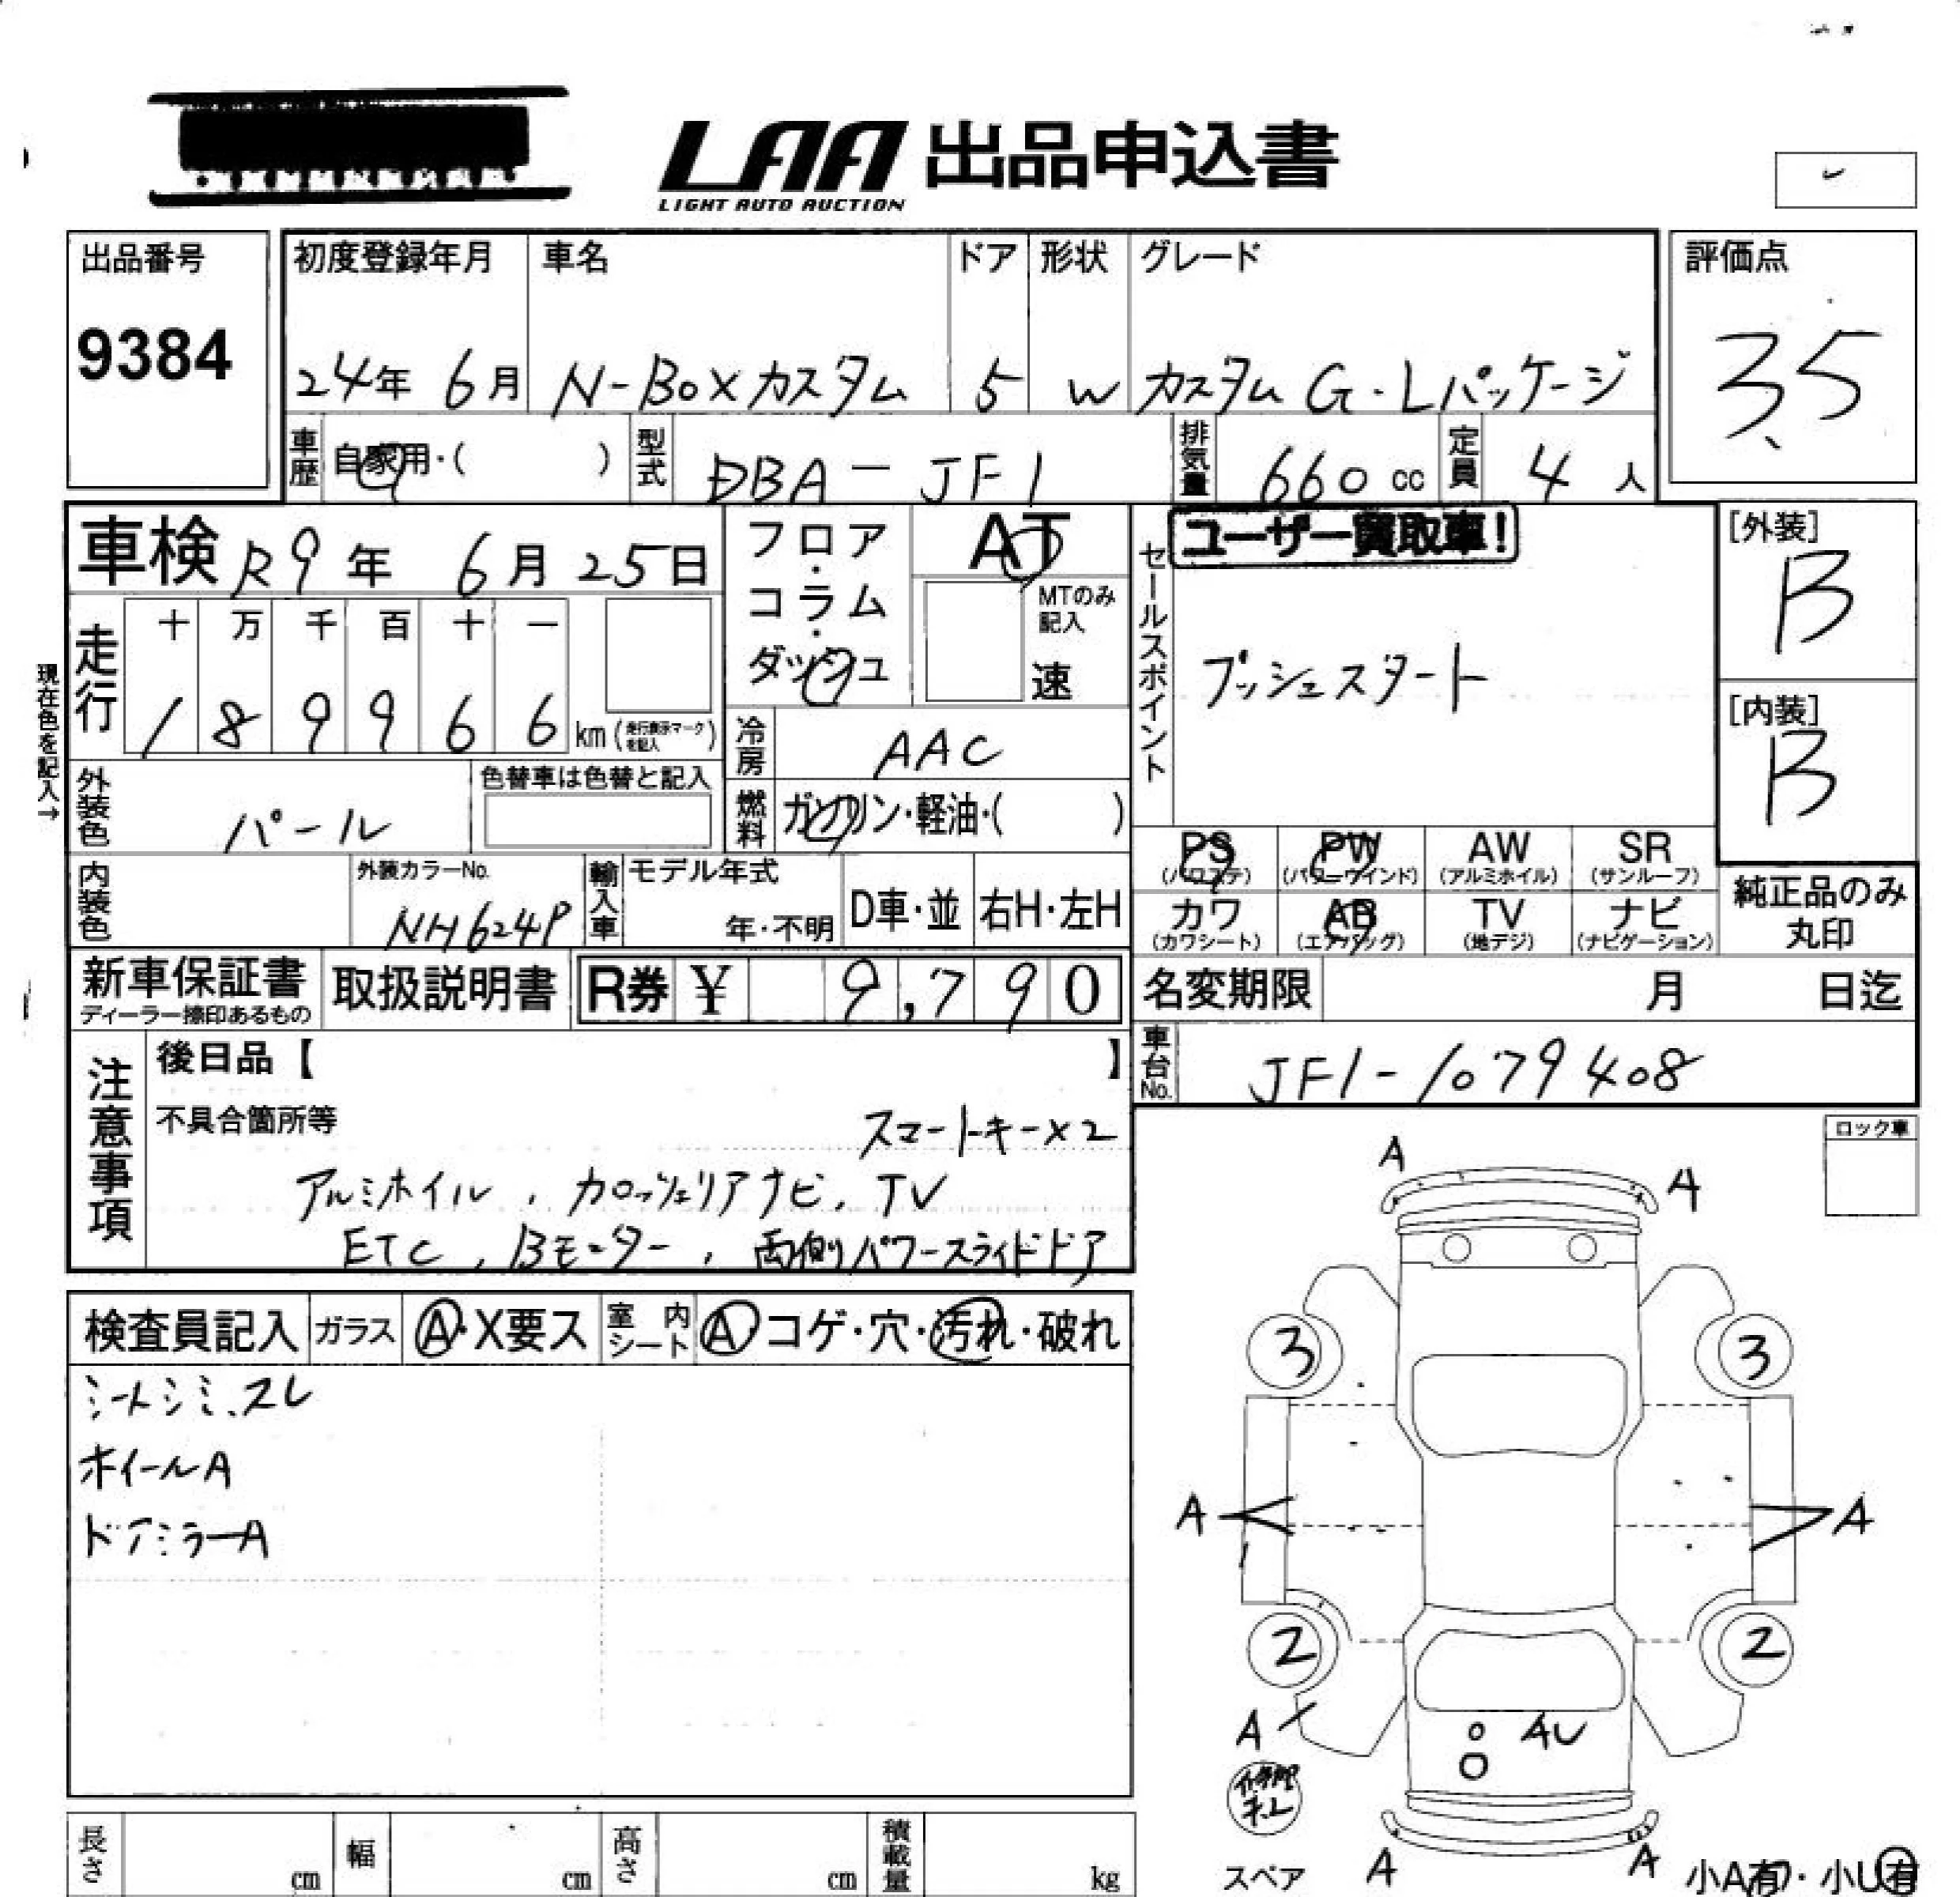 LAA 出品申込書
LIGHT AUTO AUCTION
出品番号
9384
初度登録年月 車名 ドア 形状 グレード
24年 6月 N-BOXカスタム 5 W カスタム G・Lパッケージ
評価点
3.5
車歴 自家用・( ) 型式 DBA-JF1 排気量 660cc 定員 4人
車検 R9年 6月25日
フロア・コラム・ダッシュ
AT
MTのみ記入
速
セールスポイント
ユーザー買取車!
プッシュスタート
[外装]
B
[内装]
B
現在色を記入→
走行
十 万 千 百 十 一
1 8 9 9 6 6 km(走行表示マークを記入)
冷房 AAC
外装色 パール
色替車は色替と記入
燃料 ガソリン・軽油・( )
PS PW AW SR
(パワステ) (パワーウインド) (アルミホイル) (サンルーフ)
カワ AB TV ナビ
(カワシート) (エアバッグ) (地デジ) (ナビゲーション)
純正品のみ
丸印
内装色
外装カラーNo.
NH624P
輸入車 モデル年式
年・不明 D車・並 右H・左H
新車保証書
ディーラー捺印あるもの
取扱説明書
R券 ¥ 9,790
名変期限 月 日迄
車台No. JF1-1079408
注意事項
後日品【 】
不具合箇所等
スマートキー×2
アルミホイル、カロッツェリアナビ、TV
ETC、Bモニター、両側パワースライドドア
ロック車
検査員記入 ガラス A・X要ス 室内シート A・コゲ・穴・汚れ・破れ
シートシミ、スレ
ホイールA
ドアミラーA
A A
3 3
A A
2 2
A AU
スペア A A 小A有・小U有
長さ cm 幅 cm 高さ cm 積載量 kg